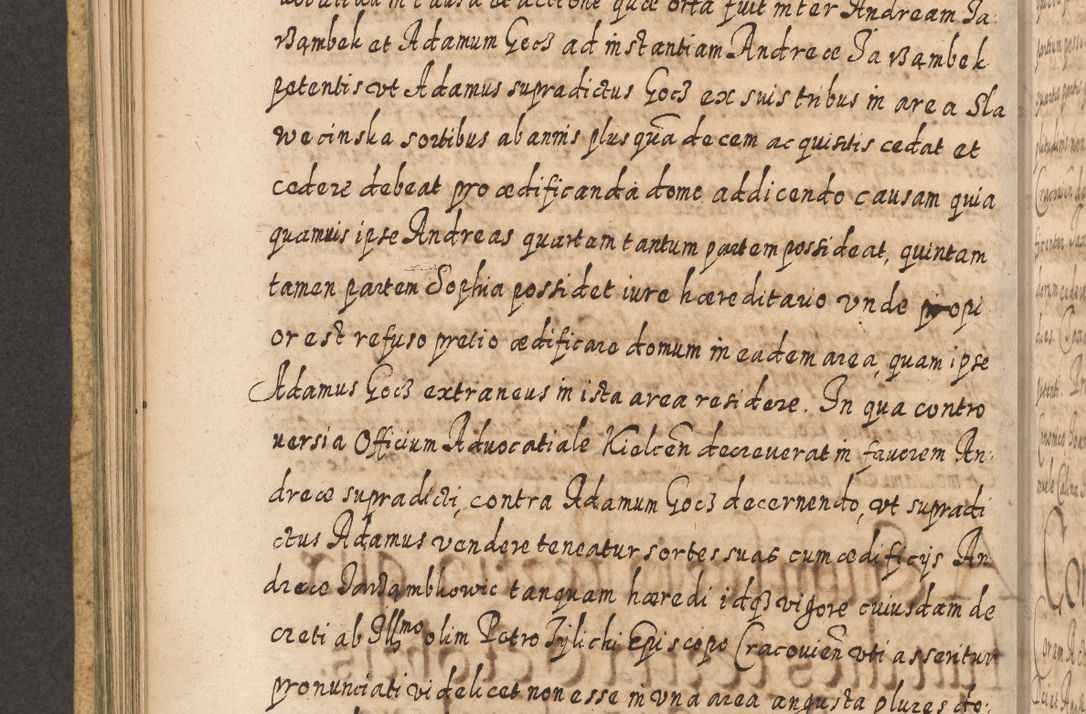 in causa et actione quæ orta fuit inter Andream Ja
rząmbek et Adamum Gocz ad instantiam Andreæ Jarząmbek
petentis vt Adamus supradictus Gocz ex suis tribus in area Sla
wecinska sortibus ab annis plus quã decem acquisitis cedat et
cedere debeat pro ædificanda domo addicendo causam quia
quamuis ipse Andreas quartam tantum partem possideat, quintam
tamen partem Sophia possidet iure hæreditario vnde propi
or est refuso pretio ædificare domum in eadem area, quam ipse
Adamus Gocz extraneus in ista area residere. In qua contro
uersia Officium Aduocatiale Kielceñ decreuerat in fauorem An-
dreæ supradicti, contra Adamum Gocz decernendo, vt supradi
ctus Adamus vendere teneatur sortes suas cum ædificijs An
dreæ Jarząmbkowic tanquam hæredi idqꝫ vigore cuiusdam de
creti ab Illmo olim Petro Tylichi Episcopo Cracouieñ vti asseritur
pronunciati videlicet non esse in vna area angusta plures do-